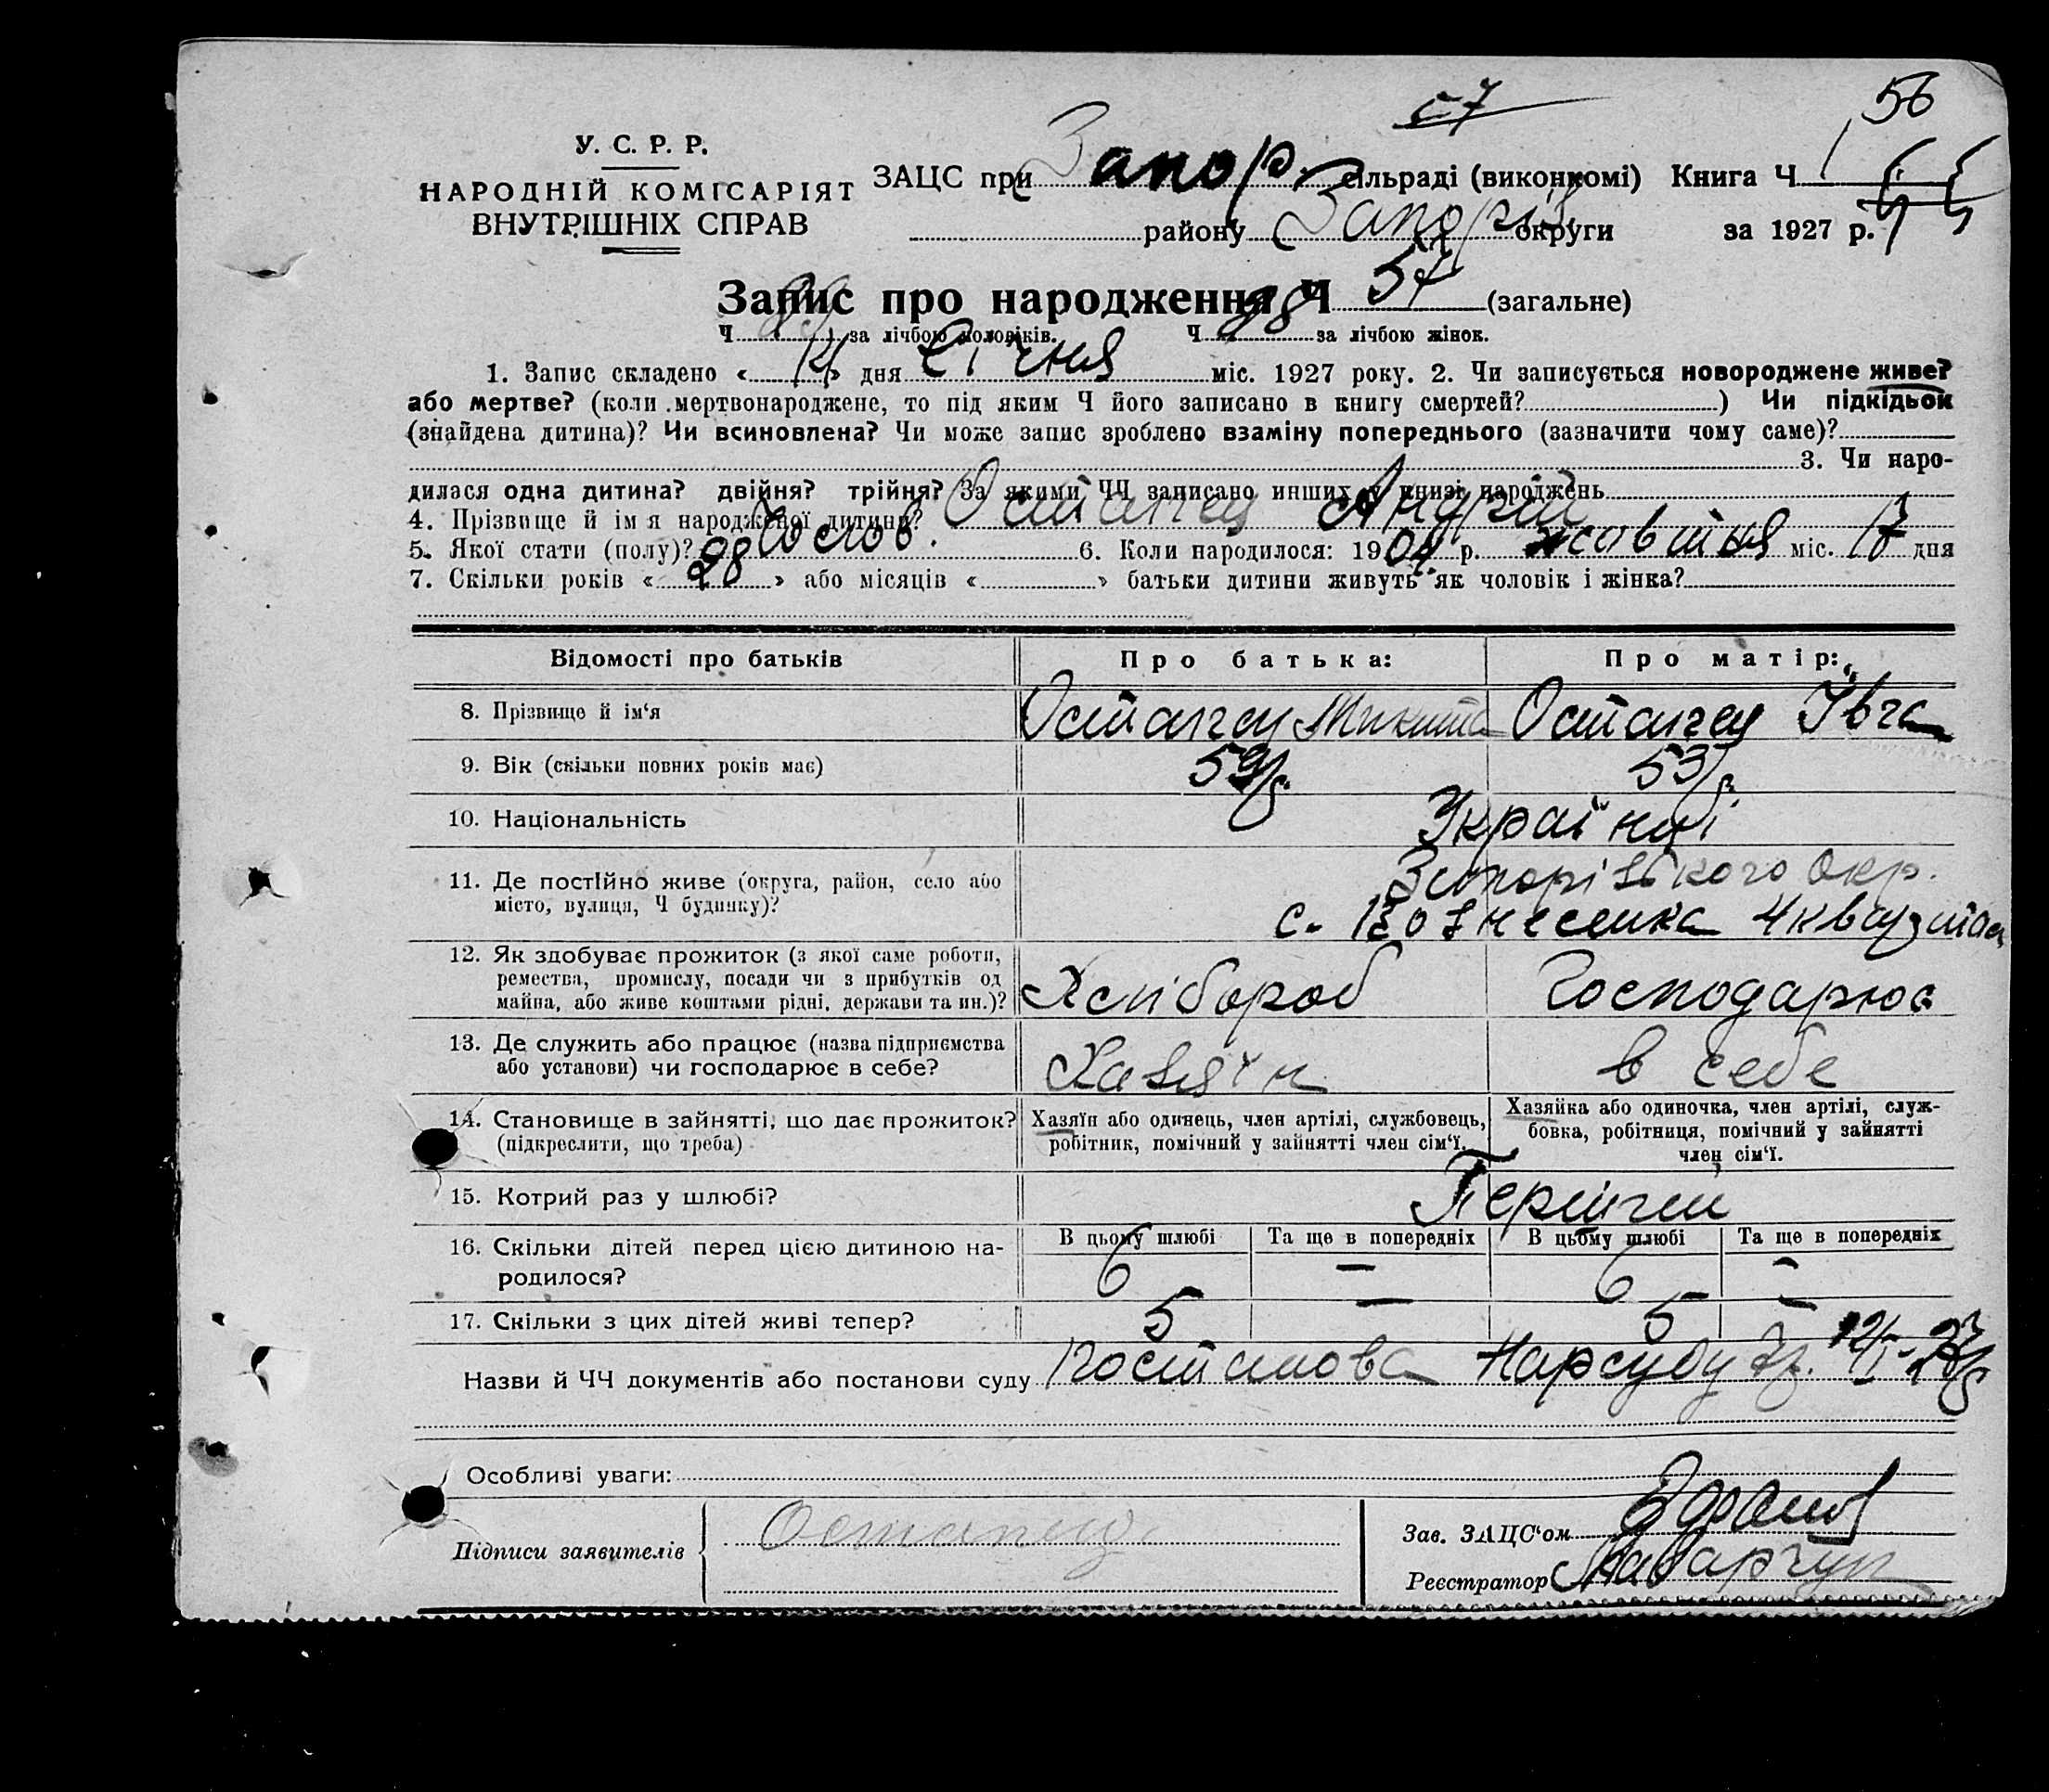 57
56
У. С. Р. Р.
НАРОДНІЙ КОМІСАРІЯТ
ВНУТРІШНІХ СПРАВ
ЗАЦС при Запор. сільраді (виконкомі) Книга Ч 1
району Запоріз округи за 1927 р.
Запис про народження Ч 57 (загальне)
Ч 29 за лічбою чоловіків. Ч 28 за лічбою жінок.
1. Запис складено « 14 » дня Січня міс. 1927 року. 2. Чи записується новороджене живе?
або мертве? (коли мертвонароджене, то під яким Ч його записано в книгу смертей? ) Чи підкідьок
(знайдена дитина)? Чи всиновлена? Чи може запис зроблено взаміну попереднього (зазначити чому саме)?
3. Чи наро-
дилася одна дитина? двійня? трійня? За якими ЧЧ записано инших у книзі народжень
4. Прізвище й ім я народженої дитини? Остапец Андрій
5. Якої стати (полу)? Чолов. 6. Коли народилося: 1904 р. жовтня міс. 17 дня
7. Скільки років « 28 » або місяців « » батьки дитини живуть як чоловік і жінка?
Відомості про батьків Про батька: Про матір:
8. Прізвище й ім‘я Остапец Микита Остапец Ївга
9. Вік (скільки повних років має) 59 р. 53 р.
10. Національність Українці
11. Де постійно живе (округа, район, село або Запорізького Окр.
місто, вулиця, Ч будинку)? с. Вознесенка 4 квартал
12. Як здобуває прожиток (з якої саме роботи,
ремества, промислу, посади чи з прибутків од
майна, або живе коштами рідні, держави та ин.)? Хлібороб Господарює
13. Де служить або працює (назва підприємства
або установи) чи господарює в себе? Хазяїн в себе
14. Становище в зайнятті, що дає прожиток? Хазяїн або одинець, член артілі, службовець, Хазяйка або одиночка, член артілі, служ-
(підкреслити, що треба) робітник, помічний у зайнятті член сім‘ї. бовка, робітниця, помічний у зайнятті
член сім‘ї.
15. Котрий раз у шлюбі? Перший
16. Скільки дітей перед цією дитиною на- В цьому шлюбі Та ще в попередніх В цьому шлюбі Та ще в попередніх
родилося? 6 — 6 —
17. Скільки з цих дітей живі тепер? 5 — 5 —
Назви й ЧЧ документів або постанови суду Постанова Нарсуду
Особливі уваги:
Підписи заявителів Остапец
Зав. ЗАЦС‘ом
Реєстратор